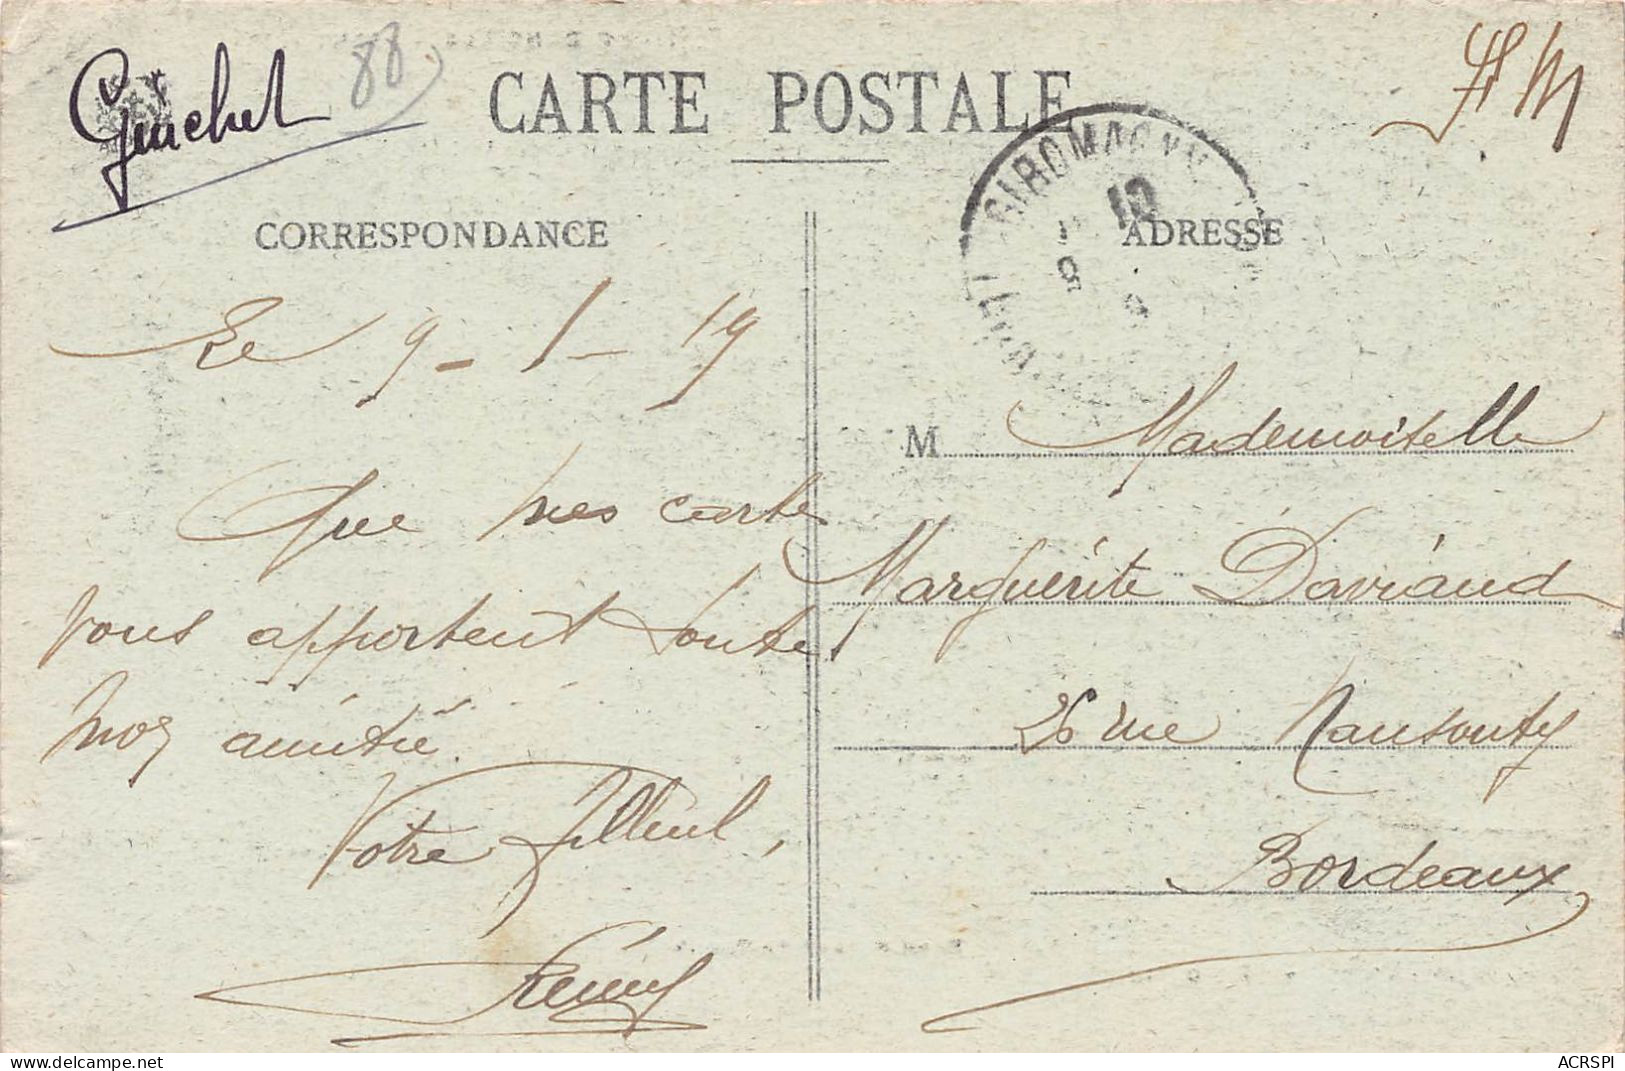 Guichet
88
CARTE POSTALE
F M
GIROMAGNY
10
CORRESPONDANCE
ADRESSE
Le 9 - 1 - 19
Que mes carte
vous apportent toute
mon amitié.
Votre filleul,
Rémy
M Mademoiselle
Marguerite Daviaud
26 rue Nansouty
Bordeaux
delcampe.net
ACRSPI